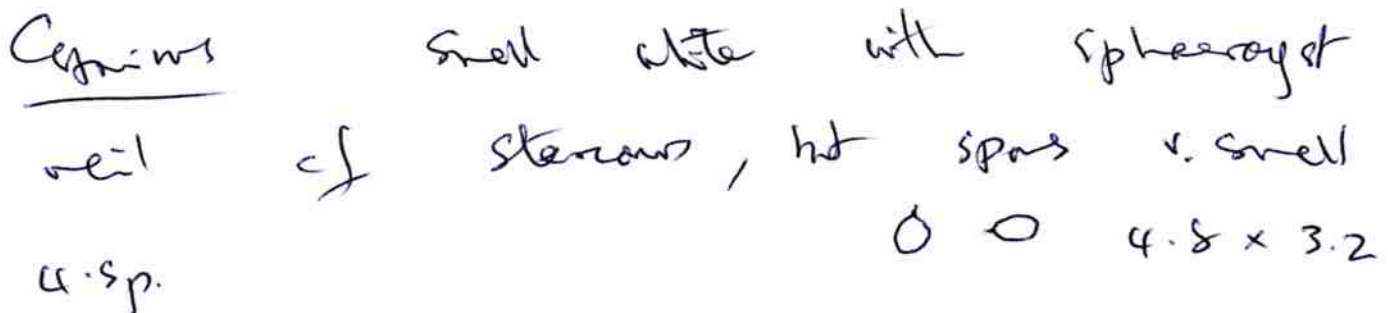 Coprinus small white with sphaerocyst
veil cf stercorarius, but spores v. small
4.8 x 3.2
4.sp.